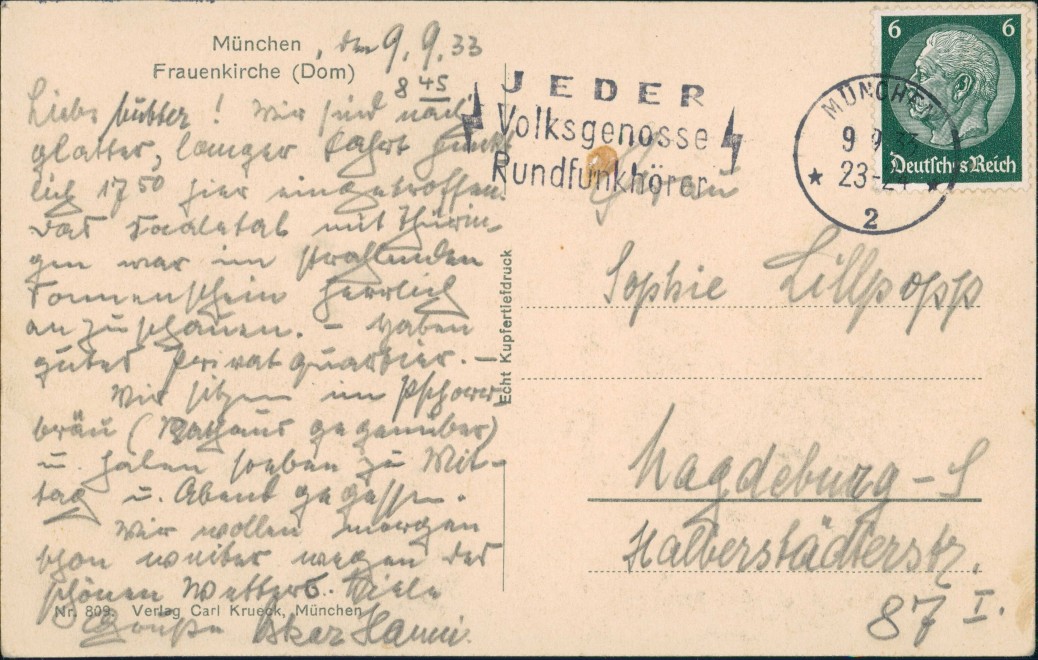 München, den 9.9.33
Frauenkirche (Dom)
8 45
Liebe Mutter! Wir sind nach
glatter, langer Fahrt pünkt
lich 17 50 hier eingetroffen.
Das Saaletal mit Thürin-
gen war im strahlenden
Sonnenschein herrlich
anzuschauen. – Haben
gutes Privatquartier. –
Wir sitzen im Pschorr-
bräu (Rathaus gegenüber)
u. haben soeben zu Mit-
tag u. Abend gegessen.
Wir wollen morgen
schon weiter wegen des
schönen Wetters. Viele
Grüße Oskar Hanni.
Nr. 809. Verlag Carl Krueck, München
Echt Kupfertiefdruck
JEDER
Volksgenosse
Rundfunkhörer
MÜNCHEN
9 9 33
23-24
2
6 6
Deutsches Reich
Frau
Sophie Lillpopp
Magdeburg-S
Halberstädterstr.
87 I.